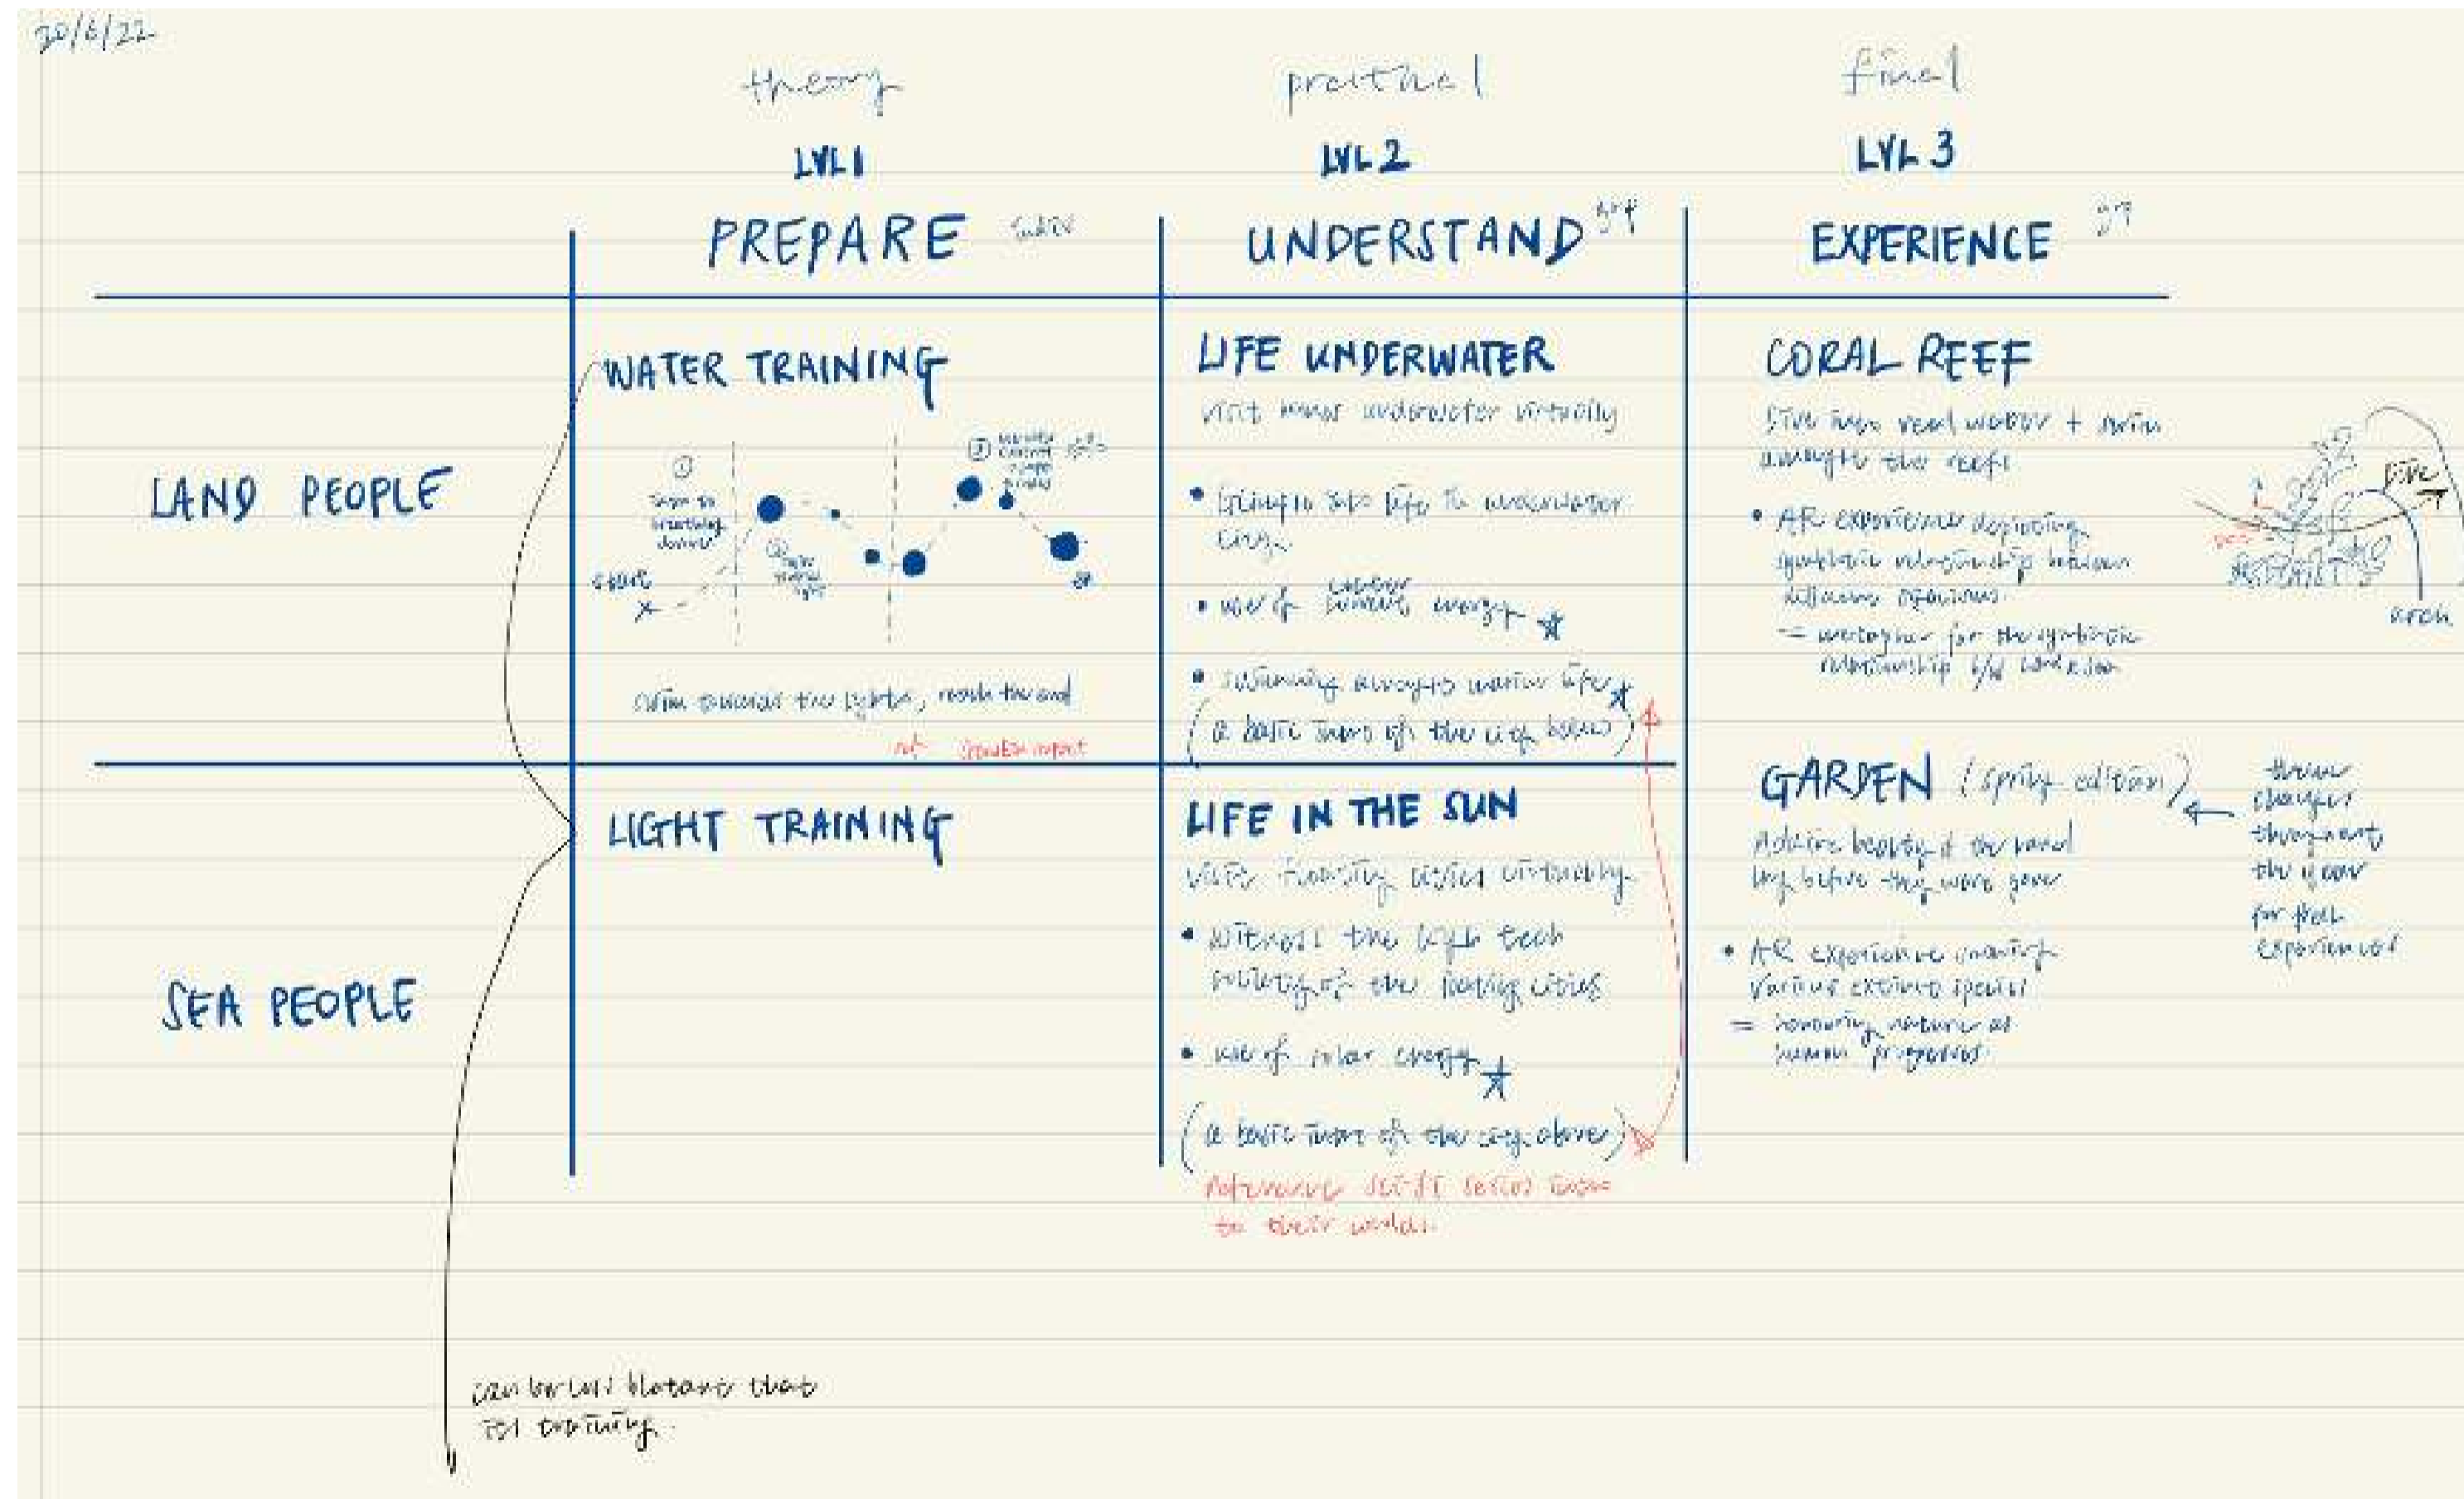 30/6/22
theory
practical
final
LVL 1
LVL 2
LVL 3
PREPARE
UNDERSTAND grp
EXPERIENCE grp
LAND PEOPLE
WATER TRAINING
①
learn to
breathing
start
②
③
swim towards the lights, reach the end
LIFE UNDERWATER
visit homes underwater virtually
• glimpse into life in underwater
city
• use of current energy
• swimming alongs marine life
(a basic intro of the city below)
CORAL REEF
Dive into real water + swim
amongst the reefs
• AR experience depicting
symbiotic relationship between
different organisms
= metaphor for the symbiotic
relationship b/w land & sea
DIVE
arch
SEA PEOPLE
LIGHT TRAINING
LIFE IN THE SUN
visit floating cities virtually
• witness the high tech
society of the floating cities
• use of solar energy
(a basic intro of the city above)
reference sci-fi series intro
to their worlds
GARDEN (spring edition)
Admire beauty of the land
long before they were gone
• AR experience showing
various extinct species
= honouring nature as
human progresses
theme
changes
throughout
the year
for fresh
experiences
can be less blatant that
its training